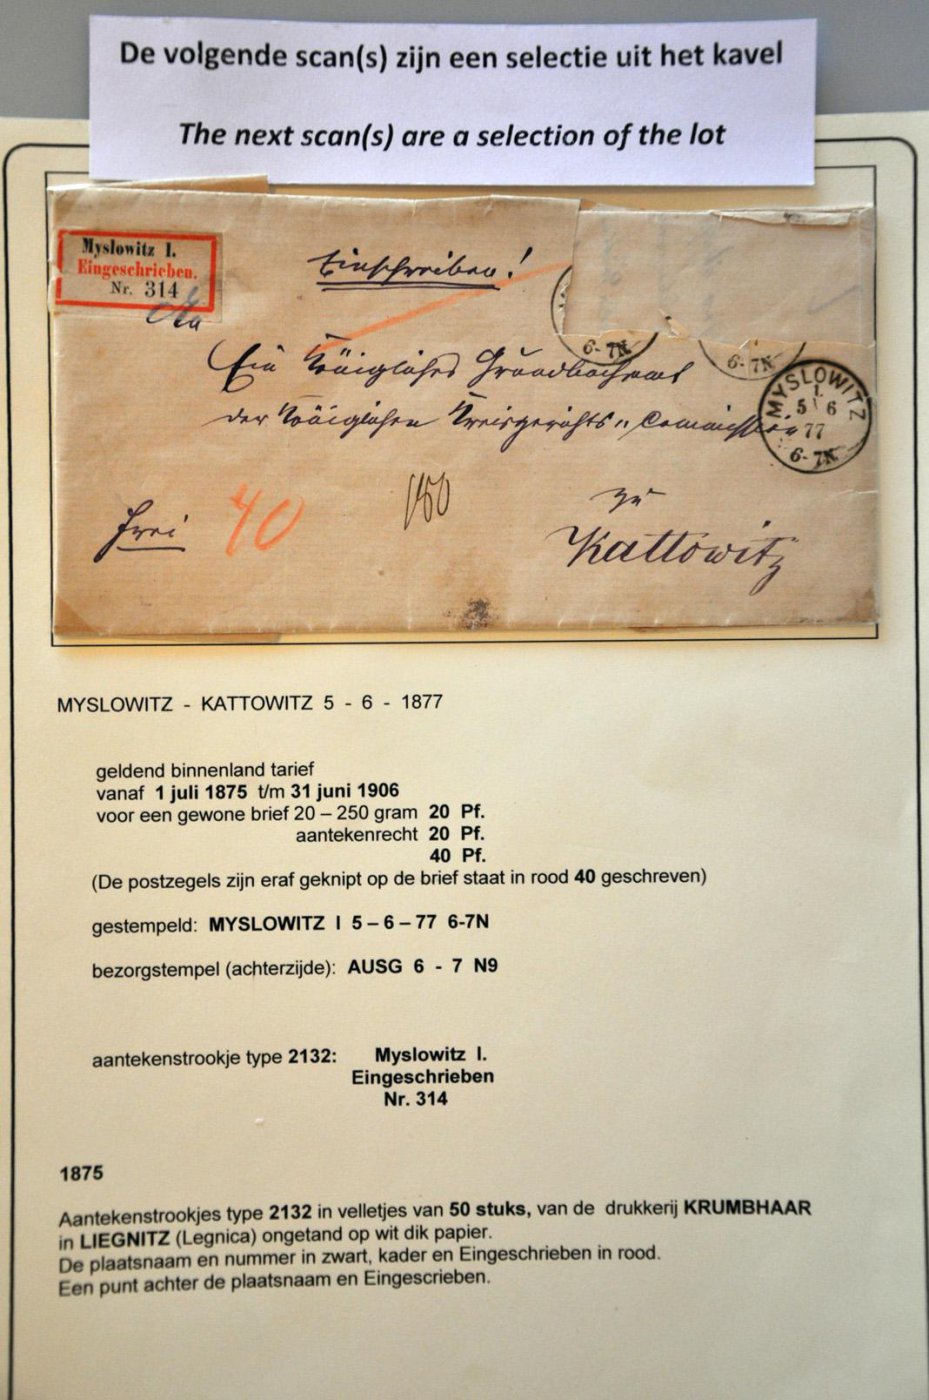 De volgende scan(s) zijn een selectie uit het kavel
The next scan(s) are a selection of the lot
Myslowitz I.
Eingeschrieben.
Nr. 314
Einschreiben!
Ein Königliches Grundbuchamt
der Königlichen Kreisgerichts-Commission
6-7N
6-7N
MYSLOWITZ
I.
5 6
77
6-7N
zu
Kattowitz
frei
40
MYSLOWITZ - KATTOWITZ 5 - 6 - 1877
geldend binnenland tarief
vanaf 1 juli 1875 t/m 31 juni 1906
voor een gewone brief 20 – 250 gram 20 Pf.
aantekenrecht 20 Pf.
40 Pf.
(De postzegels zijn eraf geknipt op de brief staat in rood 40 geschreven)
gestempeld: MYSLOWITZ I 5 – 6 – 77 6-7N
bezorgstempel (achterzijde): AUSG 6 - 7 N9
aantekenstrookje type 2132: Myslowitz I.
Eingeschrieben
Nr. 314
1875
Aantekenstrookjes type 2132 in velletjes van 50 stuks, van de drukkerij KRUMBHAAR
in LIEGNITZ (Legnica) ongetand op wit dik papier.
De plaatsnaam en nummer in zwart, kader en Eingeschrieben in rood.
Een punt achter de plaatsnaam en Eingescrieben.